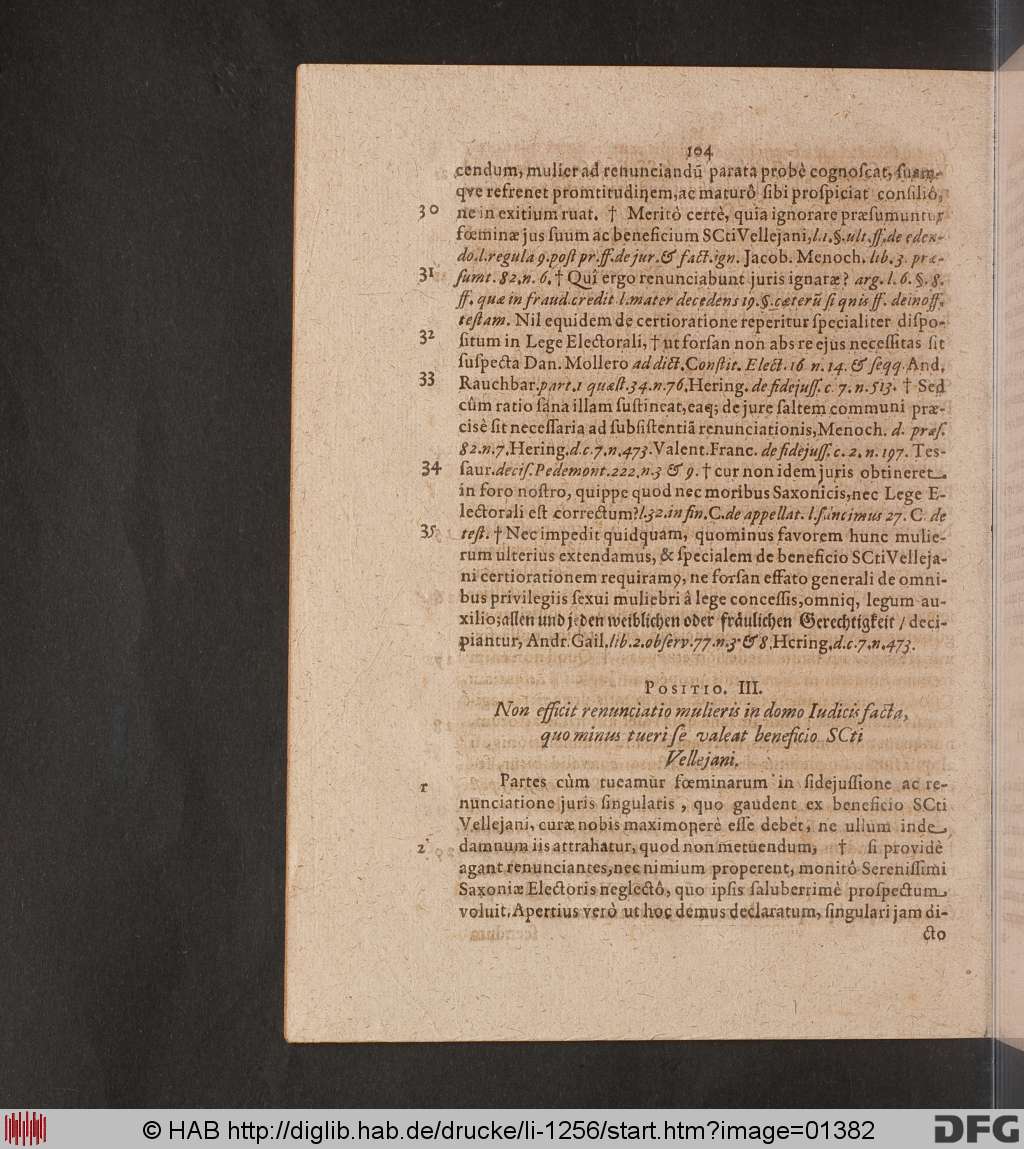 104
cendum, mulier ad renunciandũ parata probè cognoſcat, ſuam-
qve refrenet promtitudinem, ac maturô ſibi proſpiciat conſiliô,
30 ne in exitium ruat. † Meritò certè, quia ignorare præſumuntur
fœminæ jus ſuum ac beneficium SCti Vellejani, l.1.§.ult.ff.de eden-
do.l.regula 9.poſt pr.ff.de jur.& fact.ign. Jacob. Menoch. lib. 3. præ-
31 ſumt. 82.n. 6. † Quî ergo renunciabunt juris ignaræ? arg. l. 6. §. 8.
ff. quæ in fraud.credit l.mater decedens 19.§.cæterũ ſi qnis ff. de inoff.
teſtam. Nil equidem de certioratione reperitur ſpecialiter diſpo-
32 ſitum in Lege Electorali, † ut forſan non abs re ejus neceſſitas ſit
ſuſpecta Dan. Mollero ad dict.Conſtit. Elect. 16 n. 14. & ſeqq. And.
33 Rauchbar.part.1 quæſt.34.n.76.Hering. de fidejuſſ. c. 7. n. 513. † Sed
cûm ratio ſana illam ſuſtineat, eaq; de jure ſaltem communi præ-
ciſè ſit neceſſaria ad ſubſiſtentiã renunciationis, Menoch. d. præſ.
82.n.7.Hering.d.c.7.n.473.Valent.Franc. de fidejuſſ. c. 2. n. 197. Tes-
34 ſaur.deciſ.Pedemont.222.n.3 & 9. † cur non idem juris obtineret
in foro noſtro, quippe quod nec moribus Saxonicis, nec Lege E-
lectorali eſt correctum? l.32.in fin.C.de appellat. l.ſancimus 27. C. de
35 teſt. † Nec impedit quidquam, quominus favorem hunc mulie-
rum ulterius extendamus, & ſpecialem de beneficio SCti Velleja-
ni certiorationem requiramꝰ, ne forſan effato generali de omni-
bus privilegiis ſexui muliebri â lege conceſſis, omniq, legum au-
xilio; allen und jeden weiblichen oder fräulichen Gerechtigkeit / deci-
piantur, Andr. Gail.lib.2.obſerv.77.n.3 & 8.Hering.d.c.7.n.473.
POSITIO. III.
Non efficit renunciatio mulieris in domo Iudicis facta,
quo minus tueri ſe valeat beneficio SCti
Vellejani.
1 Partes cùm tueamur fœminarum in fidejuſſione ac re-
nunciatione juris ſingularis, quo gaudent ex beneficio SCti
Vellejani, curæ nobis maximoperè eſſe debet, ne ullum inde
2 damnum iis attrahatur, quod non metuendum, † ſi providè
agant renunciantes, nec nimium properent, monitô Sereniſſimi
Saxoniæ Electoris neglectô, quo ipſis ſaluberrimè proſpectum
voluit. Apertius verò ut hoc demus declaratum, ſingulari jam di-
cto
© HAB http://diglib.hab.de/drucke/li-1256/start.htm?image=01382
DFG